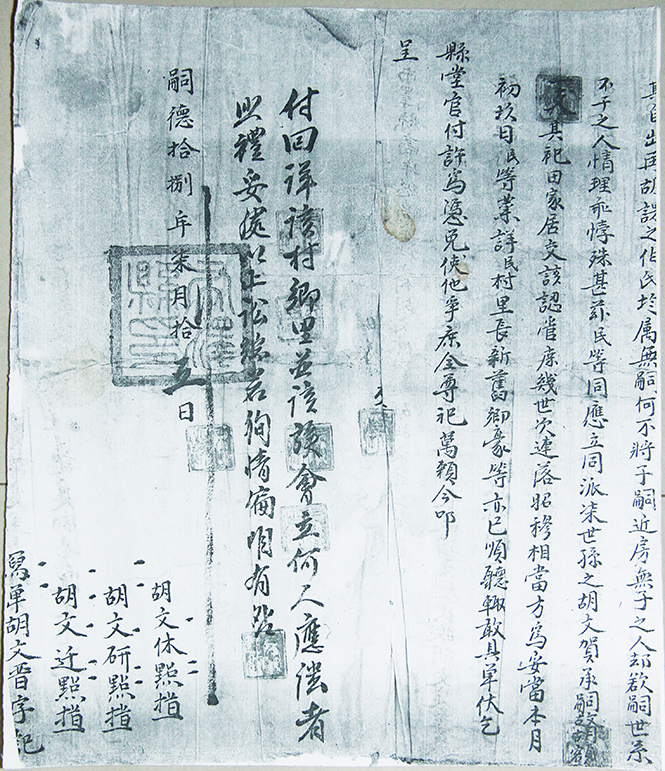 再胡誤之作民於屬無嗣何不將子嗣近房無子之人却欲嗣世系
不子之人情理乖悖殊甚茲民等同應立同派柒世孫之胡文賀承嗣
其祀田家居交該認管庶幾世次連落昭穆相當方為妥當本月
初玖日民等業詳民村里長新舊鄉豪等亦已順聽輒敢具單伏乞
縣堂官付許為憑免使他爭庶全尊祀萬頼今叩
呈
付回詳該村鄉里並該議會立何人應偿者
照禮妥處以上訟端若徇情偏有咎
嗣德拾捌年柒月拾五日
胡文休點指
胡文研點指
胡文迁點指
寫單胡文晋字記